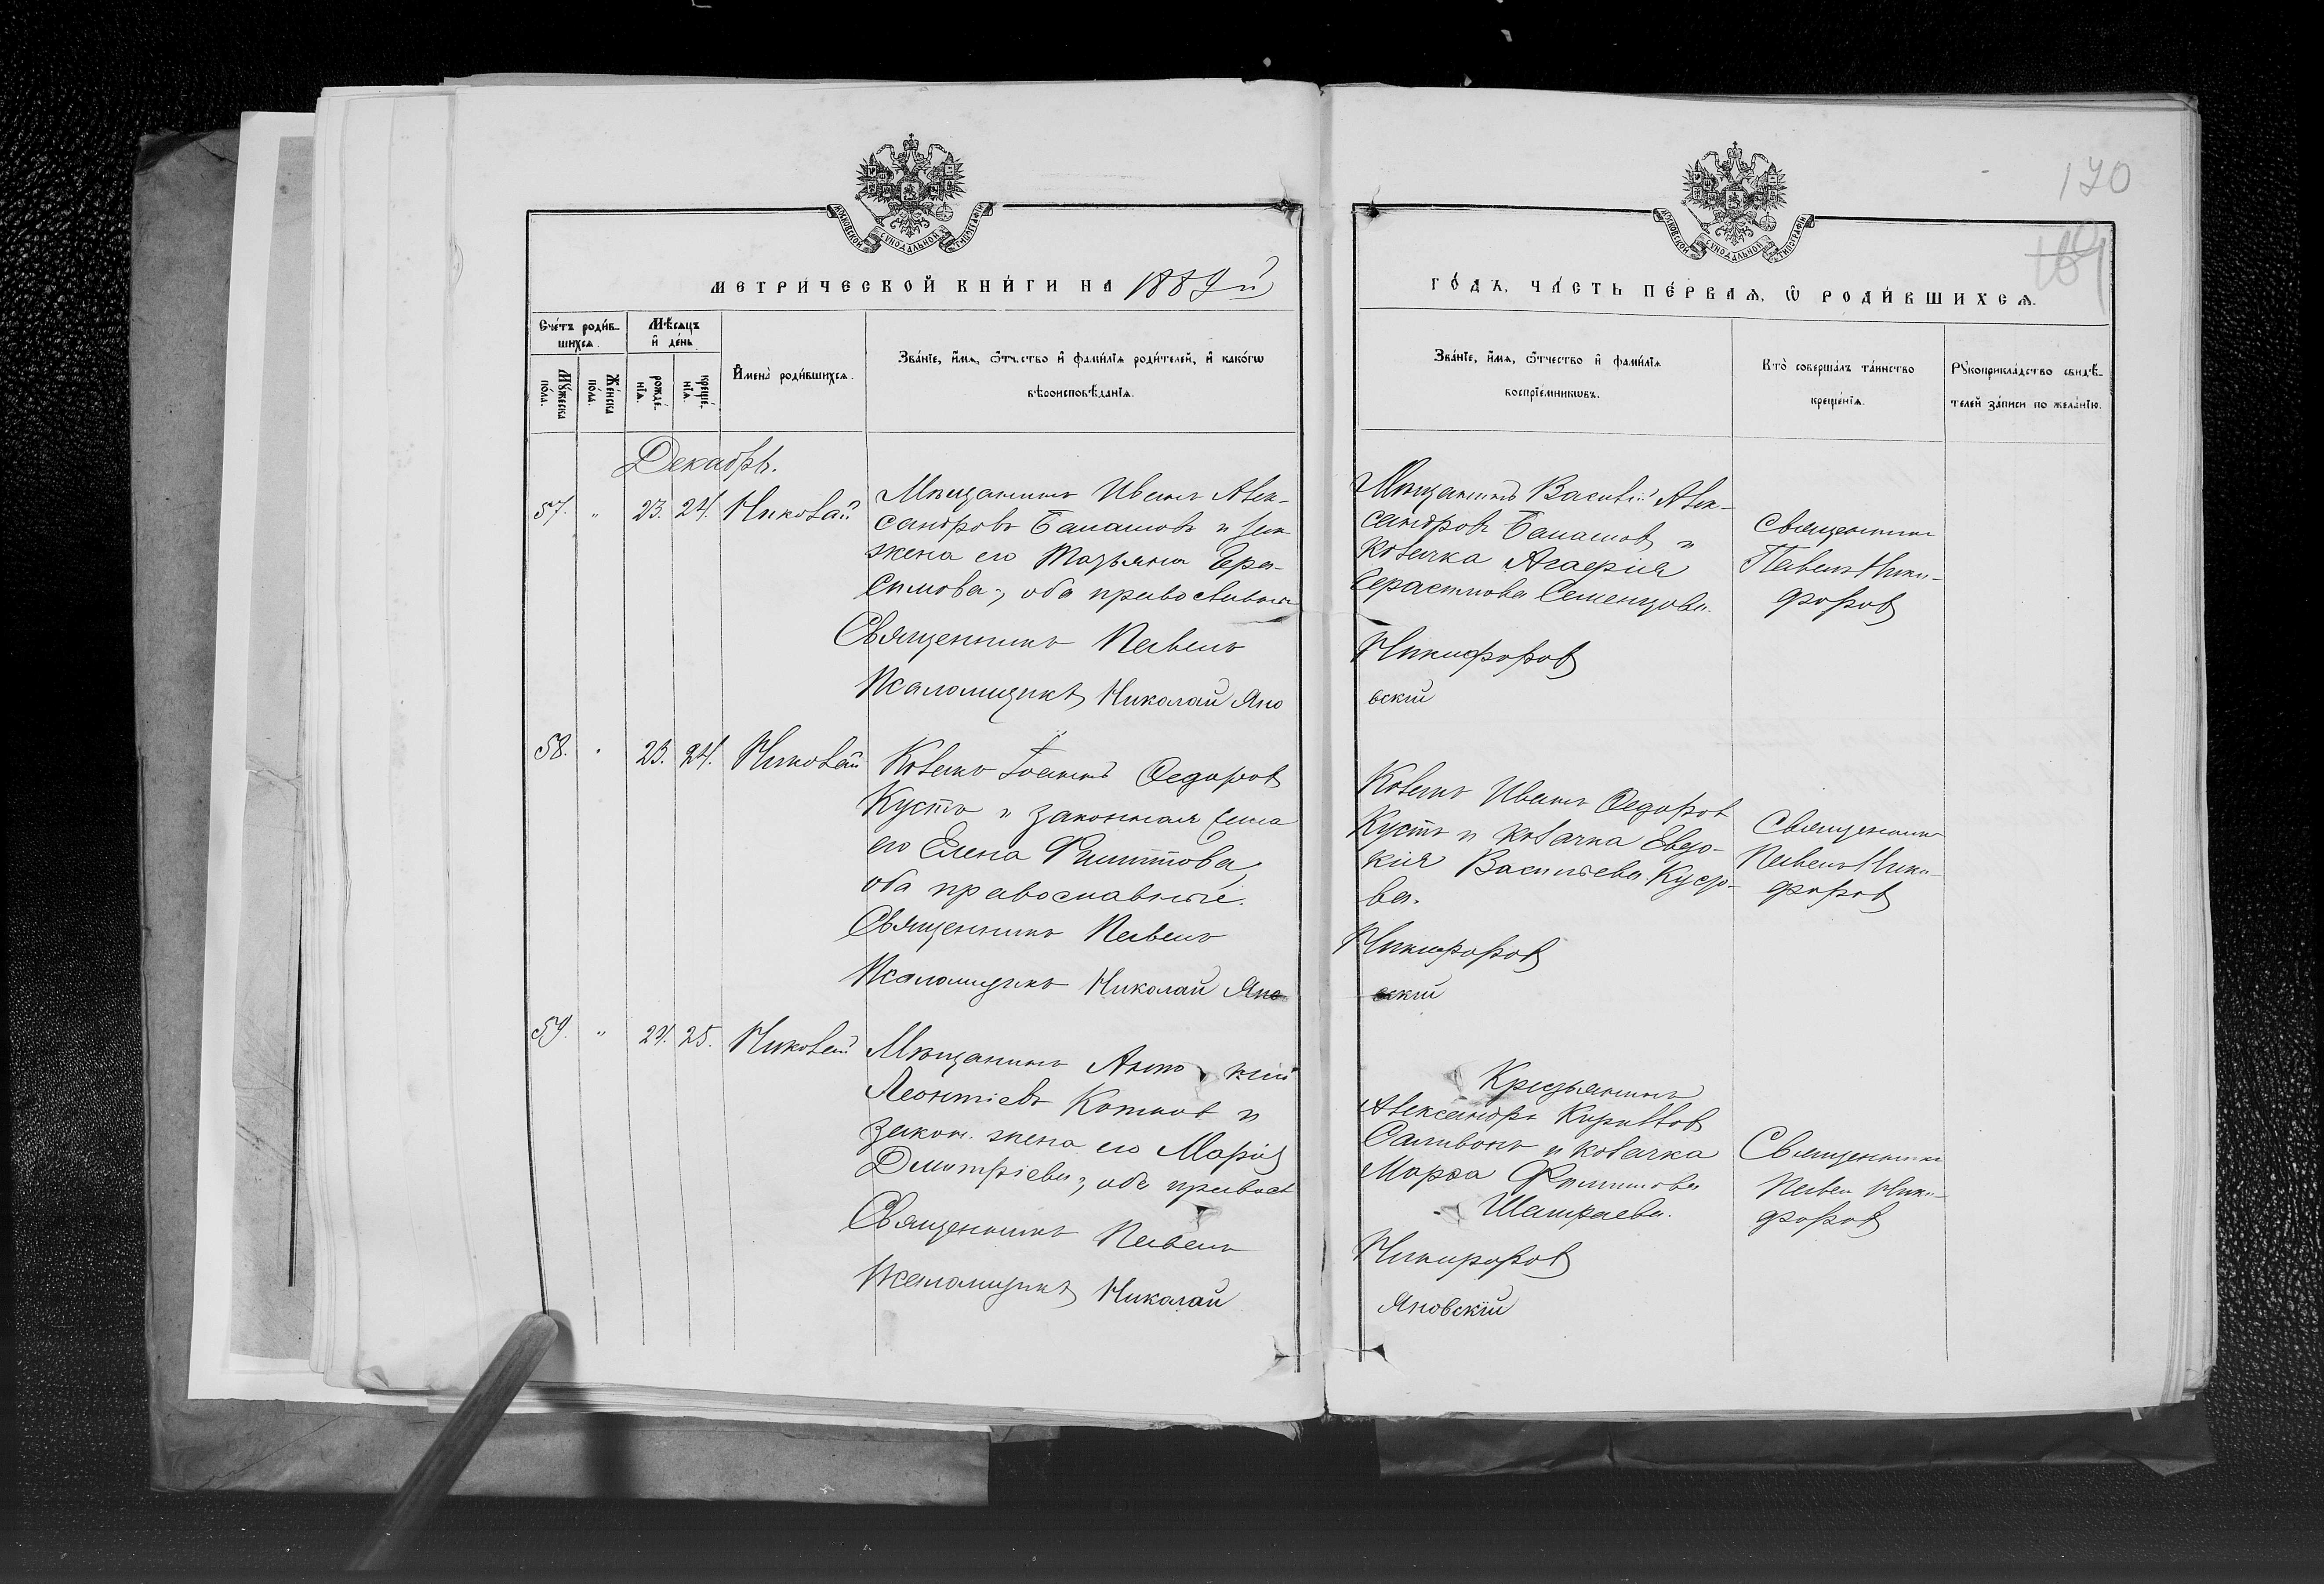 170
169
МОСКОВСКОЙ СѴНОДАЛЬНОЙ ТИПОГРАФІИ
МОСКОВСКОЙ СѴНОДАЛЬНОЙ ТИПОГРАФІИ
МЕТРИЧЕСКОЙ КНИГИ НА 1889й
ГОДЪ, ЧАСТЬ ПЕРВАЯ, Ѡ РОДИВШИХСЯ.
Счетъ родив-
шихся.
Мѣсяцъ
и день
Мужеска пола.
Женска пола.
рожде-
нія.
креще-
нія.
Имена родившихся.
Званіе, имя, отчество и фамилія родителей, и какогѡ
вѣроисповѣданія.
Званіе, имя, отчество и фамилія
воспріемникѡвъ.
Кто совершалъ таинство
крещенія.
Рукоприкладство свидѣ-
телей записи по желанію.
Декабрь.
57. " 23. 24. Николай
Мѣщанинъ Иванъ Алек-
сандровъ Балашовъ и зак
жена его Татьяна Гера-
симова; оба православные
Священникъ Павелъ
Псаломщикъ Николай Яно
Мѣщанинъ Василій Алек-
сандровъ Балашов и
козачка Агафія
Герастова Семенцова.
Никифоров
вский
Священникъ
Павелъ Ники-
форов
58. " 23. 24. Николай
Козакъ Іоаннъ Федоров
Кустъ и законная жена
его Елена Филиппова,
оба православные.
Священникъ Павелъ
Псаломщикъ Николай Яно
Козакъ Иванъ Федоров
Кустъ и козачка Евдо-
кія Васильева
ва.
Никифоров
вский
Священникъ
Павелъ Ники-
форов
59. " 24. 25. Николай
Мѣщанинъ Анто ній
Леонтіевъ Котов и
закон. жена его Марія
Дмитріева; оба правосл
Священникъ Павелъ
Псаломщикъ Николай
Крестьянинъ
Александръ Кириллов
Саливонъ и козачка
Марѳа Филиппова
Никифоров
Яновскій
Священникъ
Павел Ники-
форов